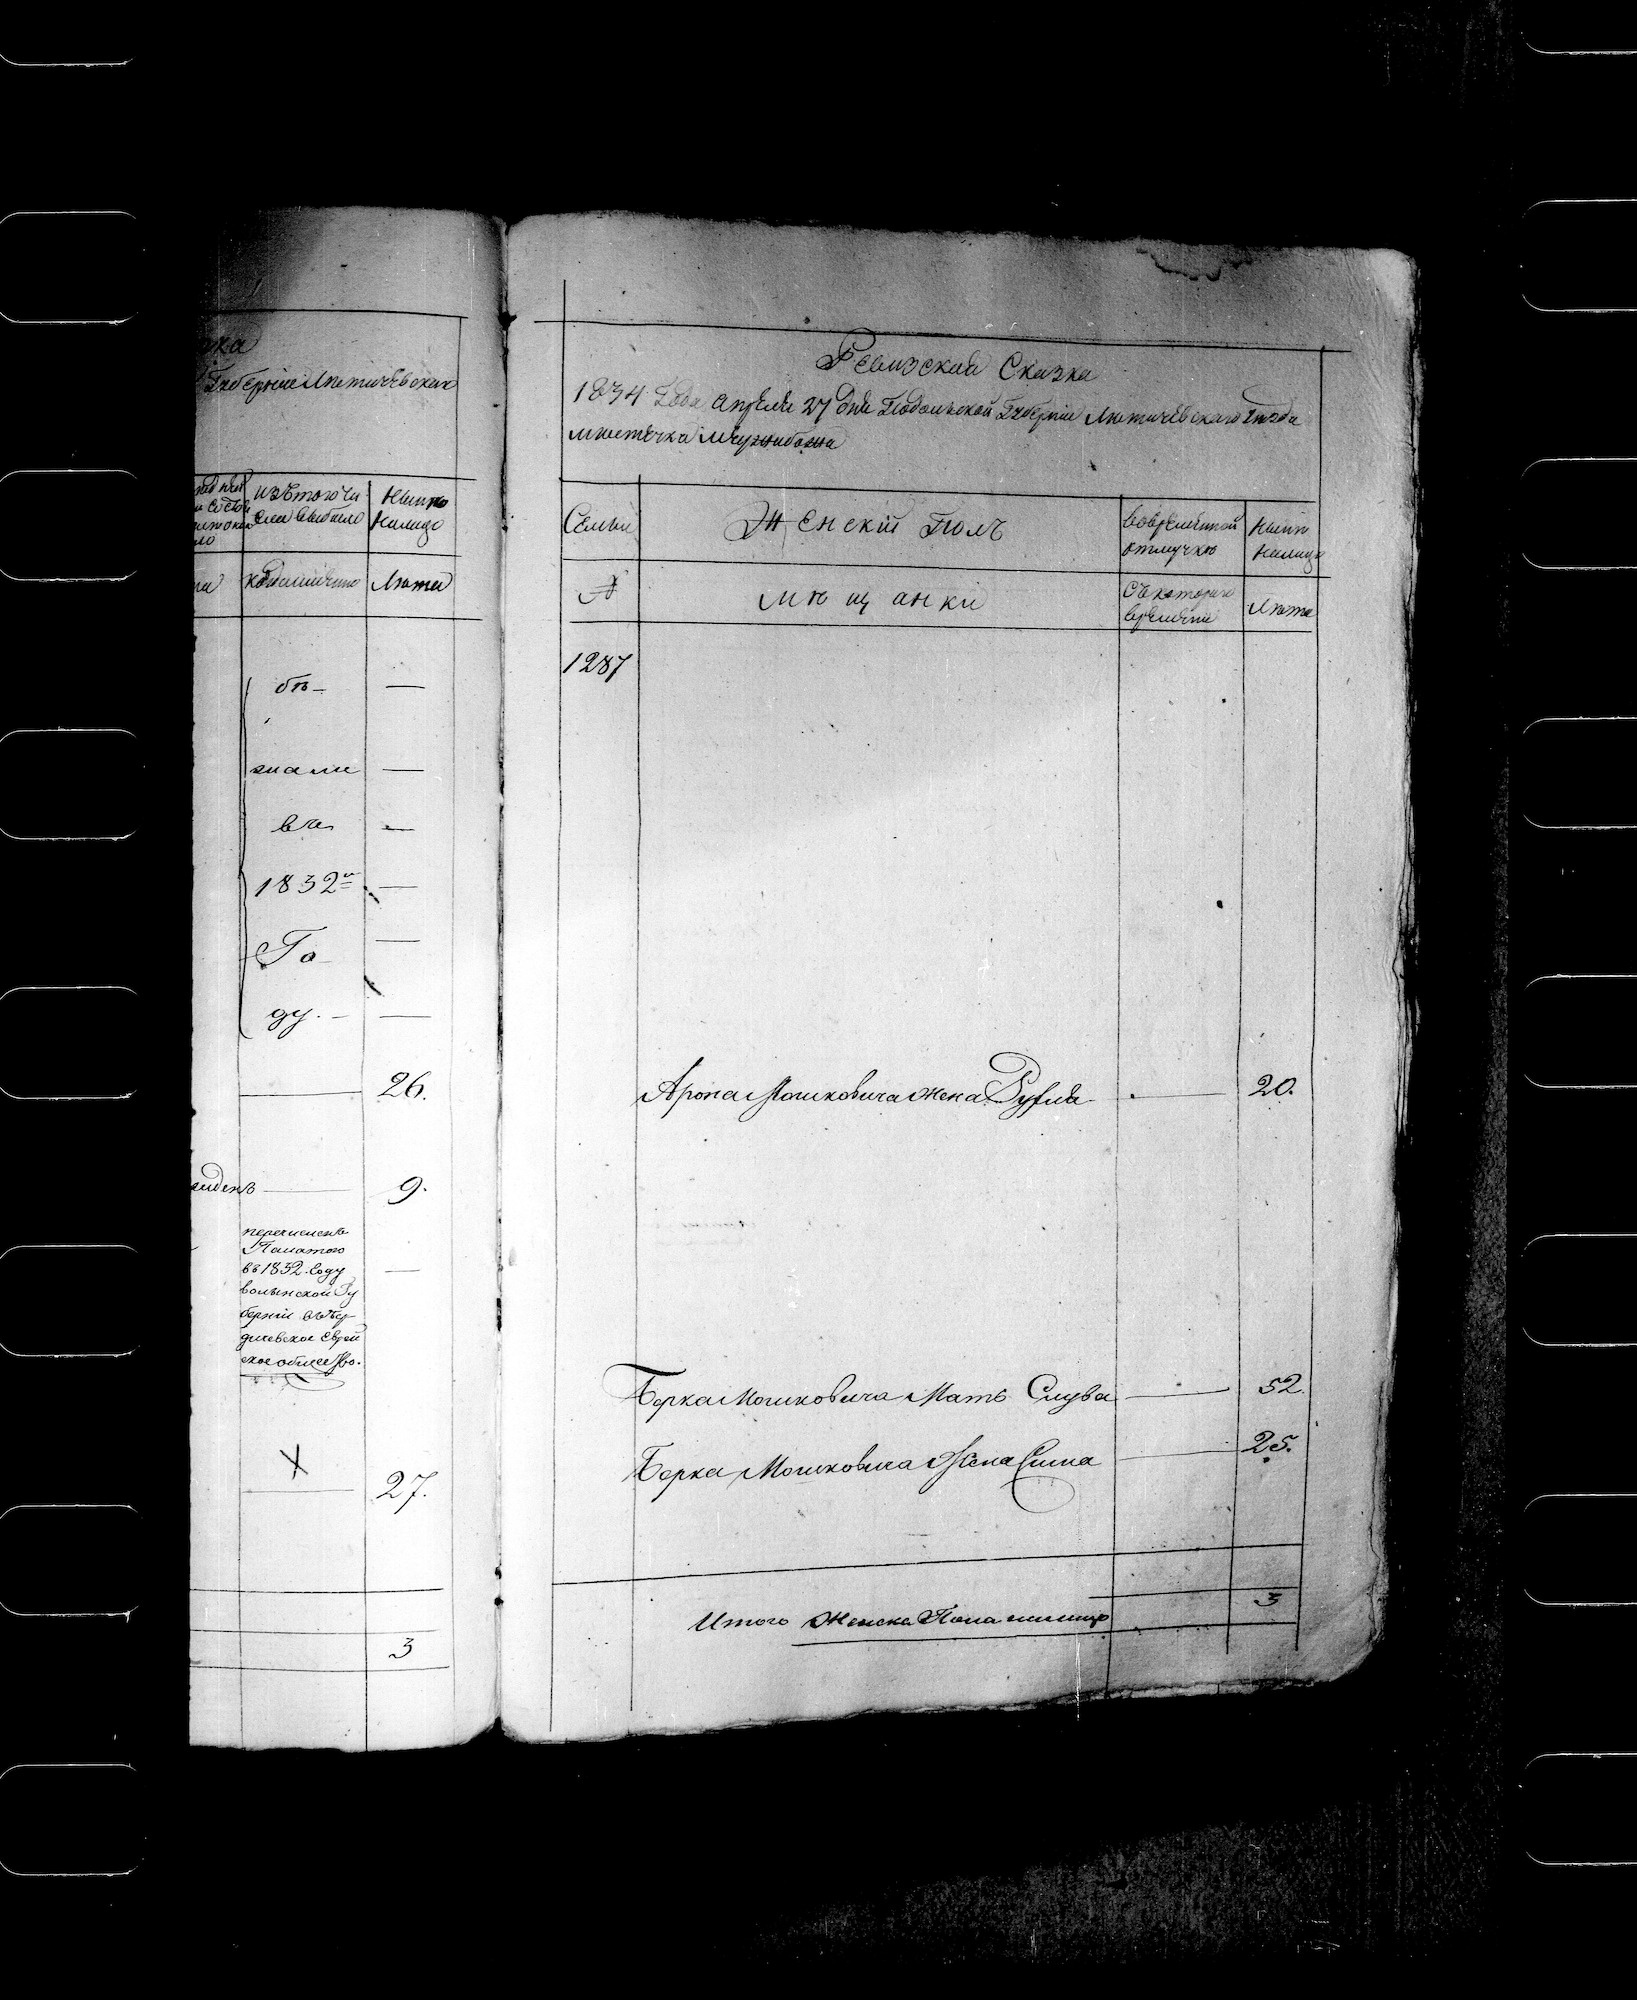 Губерніи Летичевскаго
изъ того чи
сла выбыло
Ныне
налицо
Лета
бѣ-
жали
въ
1832м
Го
ду.
26.
9.
перечисленъ
въ 1832. Году
волынской Гу
берніи въ Бер
дичевское Еврей
ское общество.
X
27.
3
Ревизская Сказка
1834 Года Апреля 27 дня Подольской Губерніи Летичевскаго уезда
местечка Межибожа
Семьи Женскій Полъ
вовременной
отлучке
Ныне
налицо
№ мещанки
Съ котораго
времени
Лета
1287
Арона Мошковича жена Рухля 20.
Берка Мошковича Мать Слува 52.
Берка Мошковича Жена Сима 25.
Итого Женска Пола налицо 3